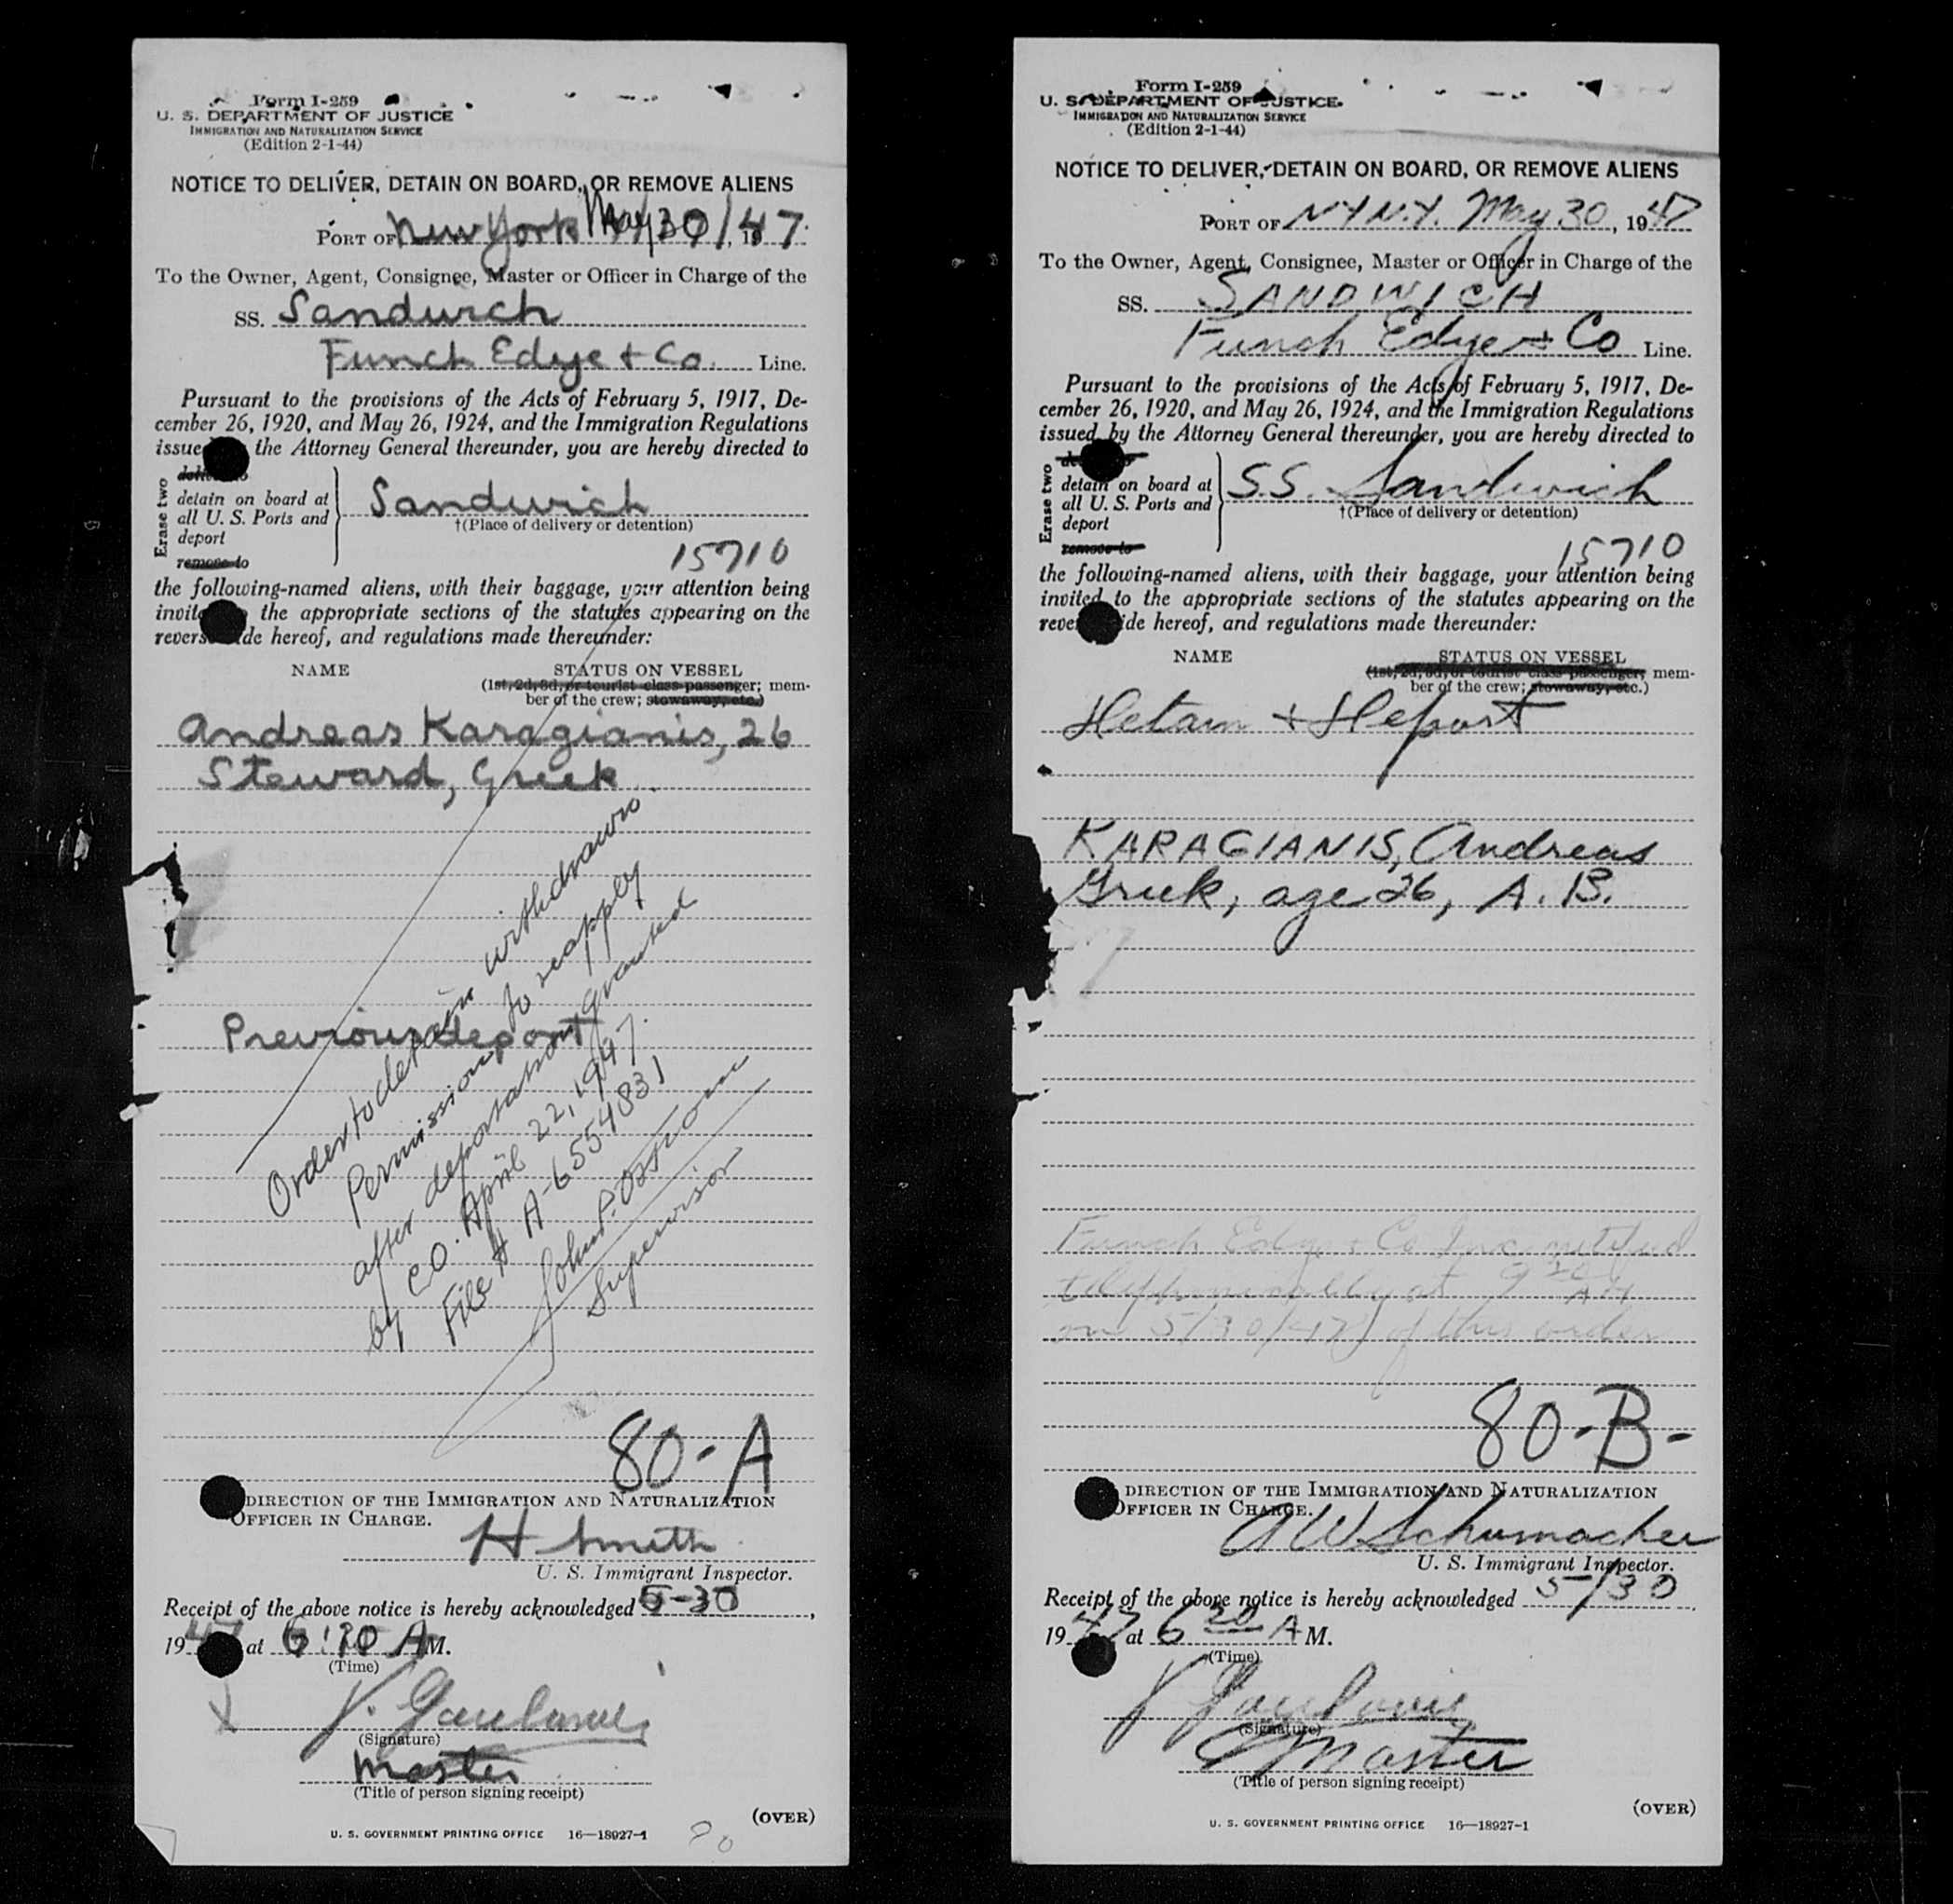 Form I-259
U. S. DEPARTMENT OF JUSTICE
IMMIGRATION AND NATURALIZATION SERVICE
(Edition 2-1-44)
NOTICE TO DELIVER, DETAIN ON BOARD, OR REMOVE ALIENS
PORT OF New York May 30/, 1947.
To the Owner, Agent, Consignee, Master or Officer in Charge of the
SS. Sandwich
Funch Edye + Co. Line.
Pursuant to the provisions of the Acts of February 5, 1917, De-
cember 26, 1920, and May 26, 1924, and the Immigration Regulations
issue the Attorney General thereunder, you are hereby directed to
Erase two
detain on board at
all U. S. Ports and
deport
remove to
Sandwich
†(Place of delivery or detention)
15710
the following-named aliens, with their baggage, your attention being
invite the appropriate sections of the statutes appearing on the
revers ide hereof, and regulations made thereunder:
NAME STATUS ON VESSEL
(1st, 2d, 3d, or tourist class passenger; mem-
ber of the crew; stowaway, etc.)
Andreas Karagianis, 26
Steward, Greek
Previous deport
Order to detain withdrawn.
Permission to reapply
after deportation granted
by CO. April 22, 1947.
File # A-6554831
John P.
Supervisor
80-A
DIRECTION OF THE IMMIGRATION AND NATURALIZATION
OFFICER IN CHARGE.
H Smith
U. S. Immigrant Inspector.
Receipt of the above notice is hereby acknowledged 5-30,
1947 at 6:20 AM.
(Time)
(Signature)
Master
(Title of person signing receipt)
(OVER)
U. S. GOVERNMENT PRINTING OFFICE 16—18927-1
Form I-259
U. S. DEPARTMENT OF JUSTICE
IMMIGRATION AND NATURALIZATION SERVICE
(Edition 2-1-44)
NOTICE TO DELIVER, DETAIN ON BOARD, OR REMOVE ALIENS
PORT OF N.Y. N.Y. May 30, 1947
To the Owner, Agent, Consignee, Master or Officer in Charge of the
SS. SANDWICH
Funch Edye + Co Line.
Pursuant to the provisions of the Acts of February 5, 1917, De-
cember 26, 1920, and May 26, 1924, and the Immigration Regulations
issued by the Attorney General thereunder, you are hereby directed to
Erase two
detain on board at
all U. S. Ports and
deport
remove to
S.S. Sandwich
†(Place of delivery or detention)
15710
the following-named aliens, with their baggage, your attention being
invited to the appropriate sections of the statutes appearing on the
reve ide hereof, and regulations made thereunder:
NAME STATUS ON VESSEL
(1st, 2d, 3d, or tourist class passenger; mem-
ber of the crew; stowaway, etc.)
Detain + Deport
KARAGIANIS, Andreas
Greek, age 26, A. B.
Funch Edye + Co Inc. notified
telephonically at 9 30 AM
on 5/30/47 of this order
80-B-
DIRECTION OF THE IMMIGRATION AND NATURALIZATION
OFFICER IN CHARGE.
A W Schumacher
U. S. Immigrant Inspector.
Receipt of the above notice is hereby acknowledged 5/30.
1947 at 6 20 A M.
(Time)
(Signature)
Master
(Title of person signing receipt)
(OVER)
U. S. GOVERNMENT PRINTING OFFICE 16—18927-1